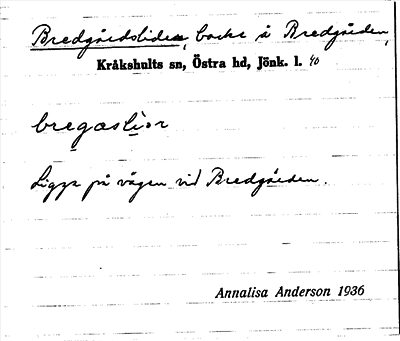 Bredgärdsliden, backe å Bredgärden,
Kråkshults sn, Östra hd, Jönk. l. 40
bregaslior
Ligger på vägen vid Bredgärden.
Annalisa Anderson 1936